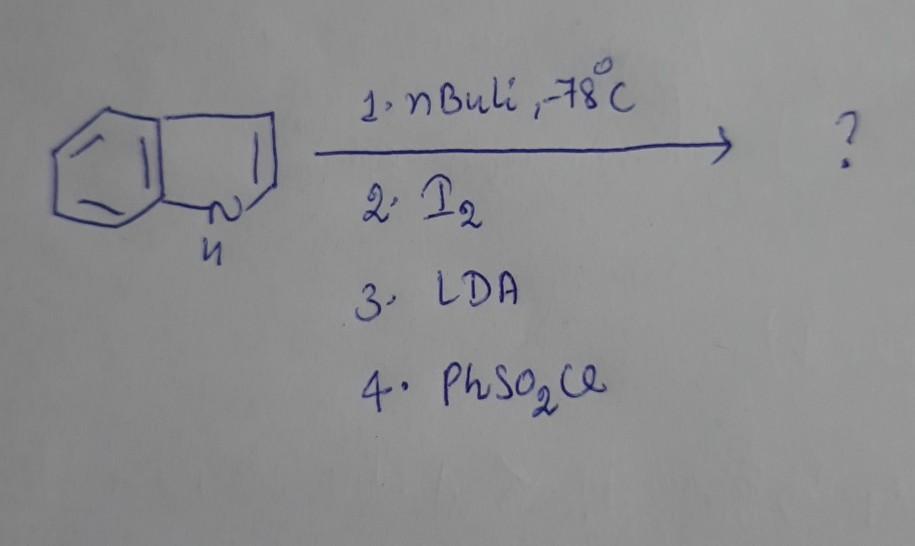 1. nBuLi, -78°C
?
2. I2
3. LDA
4. PhSO2Cl
N
H